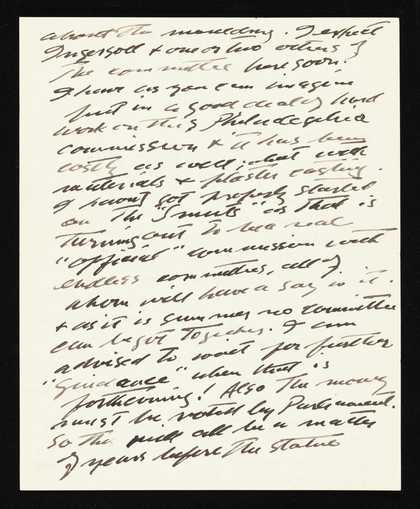 about the moulding. I expect
Ingersoll & one or two others of
the committee here soon.
I have as you can imagine
put in a good deal of hard
work on this Philadelphia
commission & it has been
costly as well; what with
materials & plaster casting.
I haven't got properly started
on the "Smuts" as that is
turning out to be a real
"official" commission with
endless committees, all of
whom will have a say in it.
& as it is summer no committee
can be got together. I am
advised to wait for further
"guidance" when that is
forthcoming! Also the money
must be voted by Parliament.
So this will all be a matter
of years before the statue